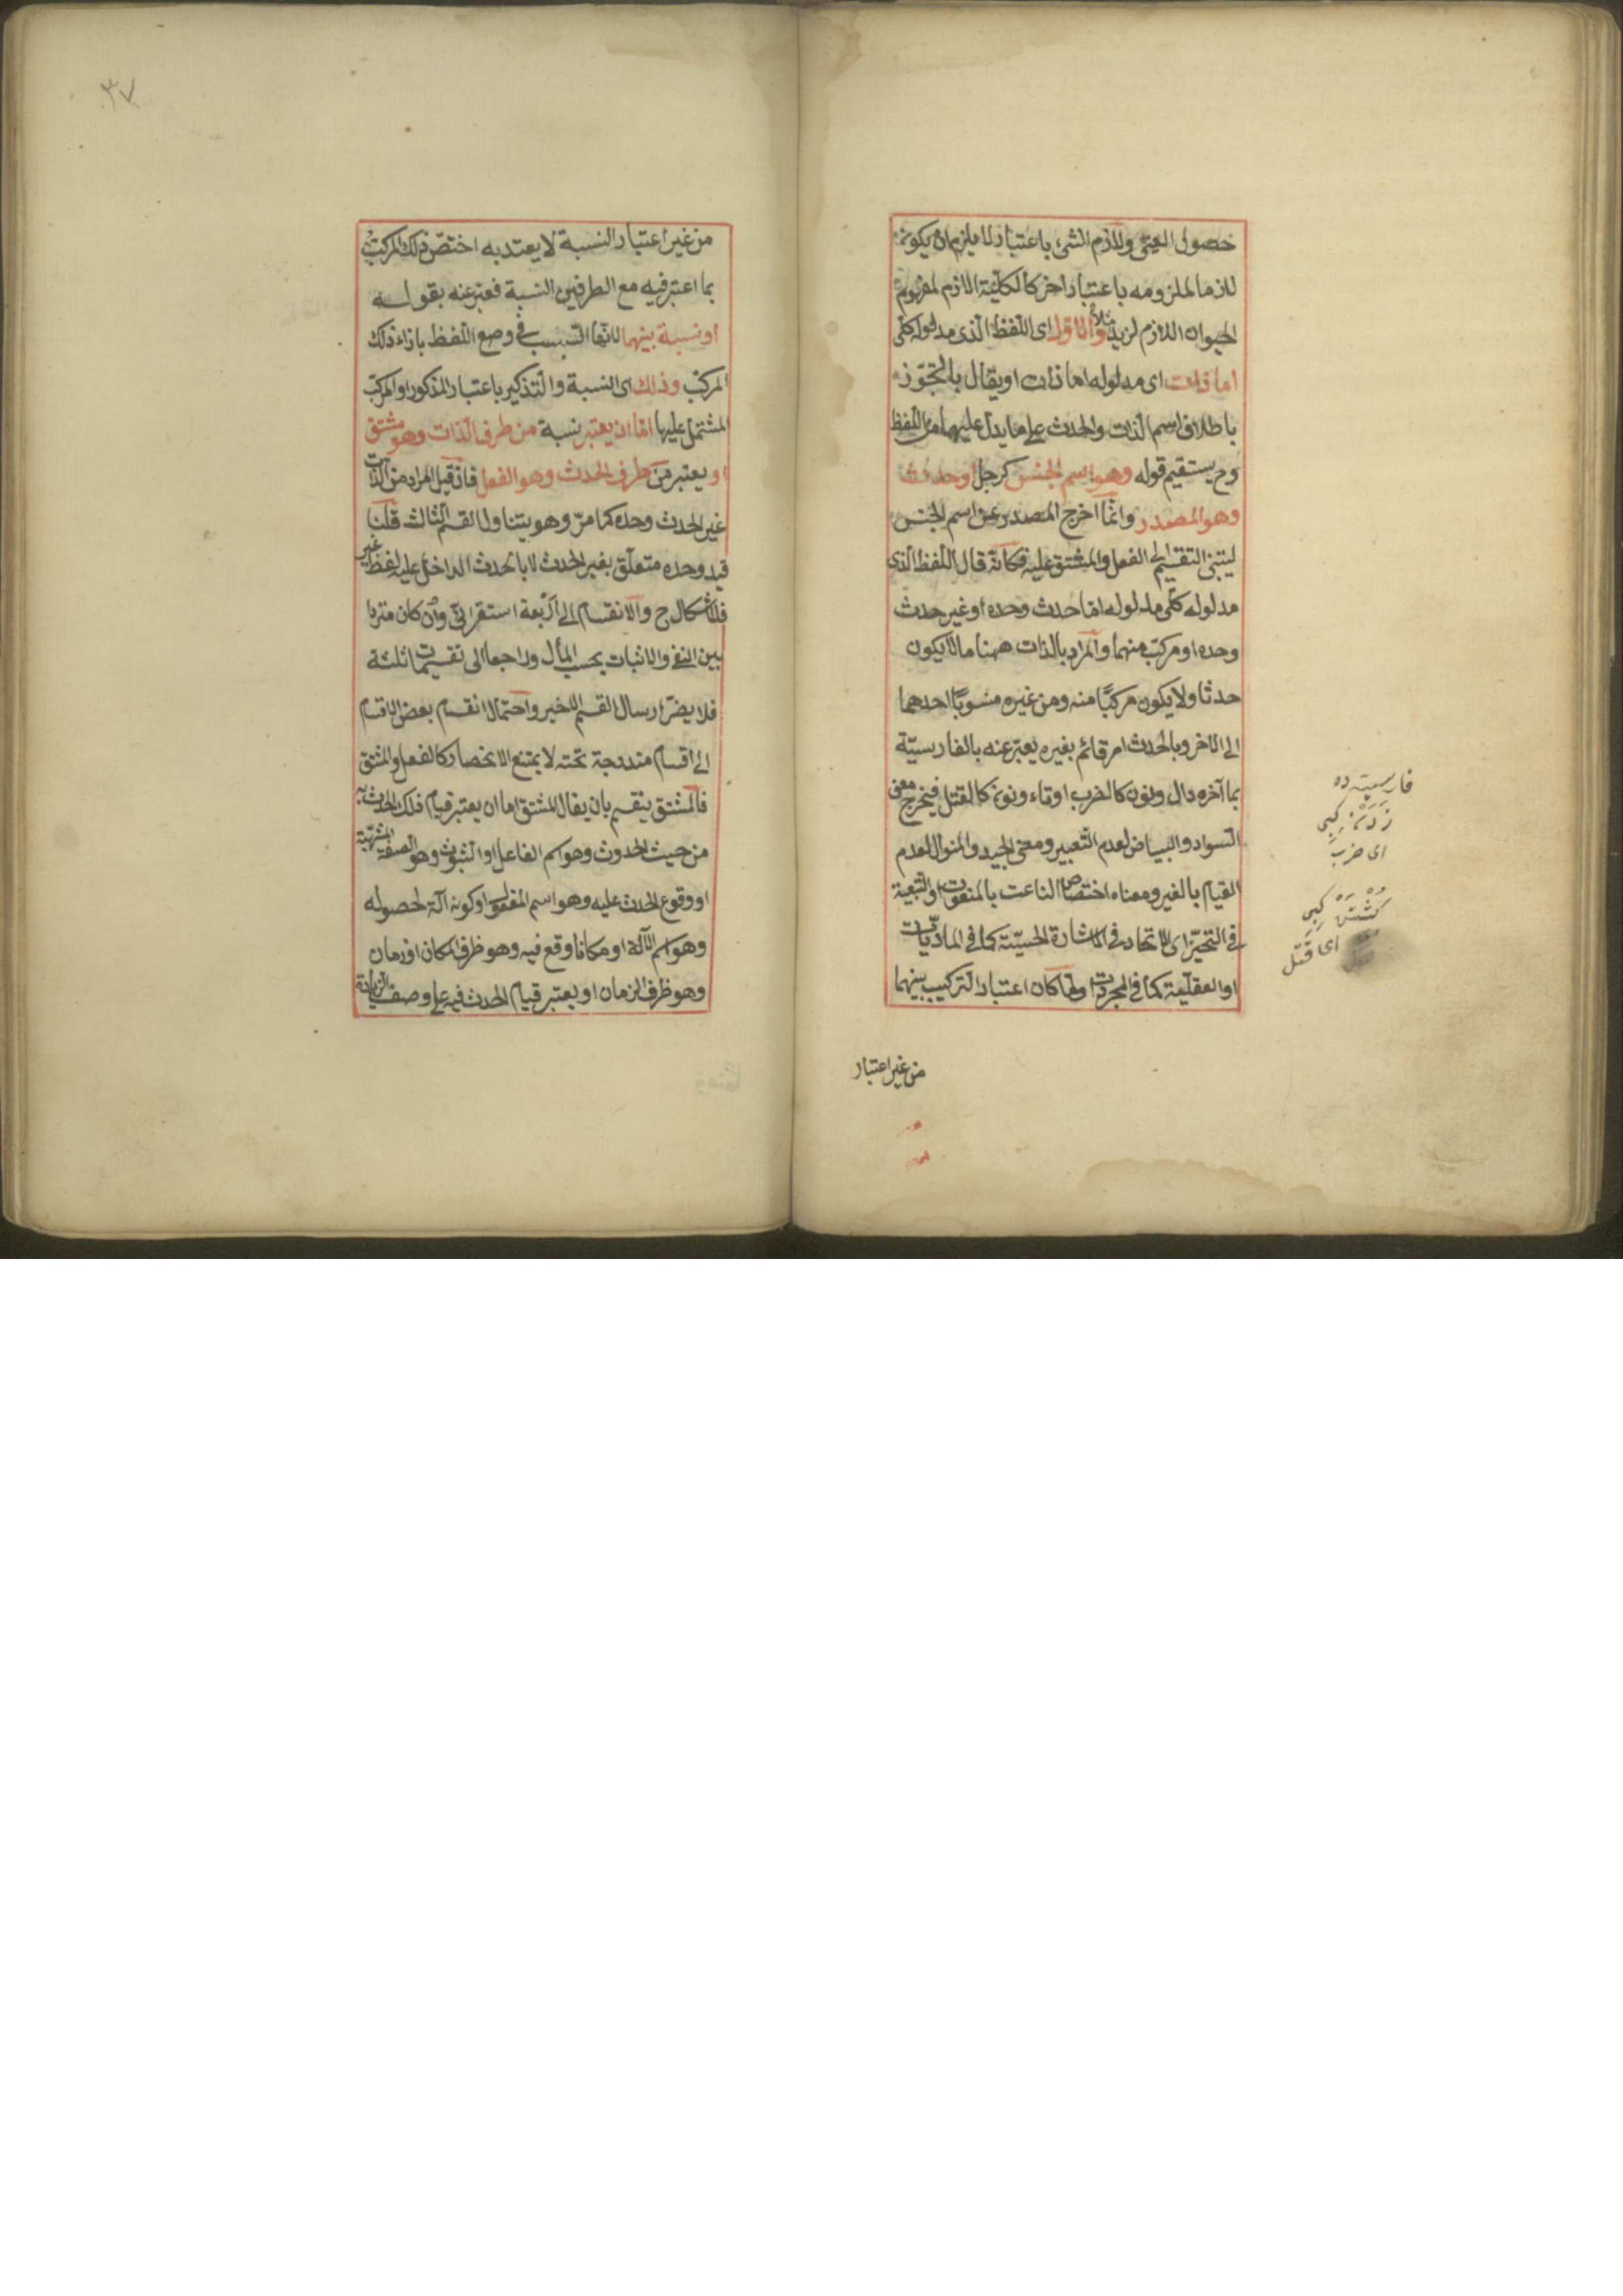 حصول العمى ولازم الشئ باعتبار لا يلزم ان يكون
لازما لملزومه باعتبار اخر كالكلية اللازم لمفهوم
الحيوان اللازم لزيد مثلا والاول اى اللفظ الذى مدلوله كلى
اما ذات اى مدلوله اما ذات او يقال بالتجوز
باطلاق اسم الذات والحدث على ما يدل عليهما من اللفظ
وح يستقيم قوله وهو اسم الجنس كرجل او حدث
وهو المصدر وانما اخرج المصدر عن اسم الجنس
ليتبنى التقسيم الى الفعل والمشتق عليه فكانه قال اللفظ الذى
مدلوله كلى مدلوله اما حدث وحده او غير حدث
وحده او مركب منهما والمراد بالذات ههنا ما لا يكون
حدثا ولا يكون مركبًا منه ومن غيره منسوبًا احدهما
الى الاخر وبالحدث امر قائم بغيره يعبّر عنه بالفارسيّة
بما آخره دال ونون كالضرب او تاء ونون كالقتل فيخرج معنى
السواد والبياض لعدم التعبير ومعنى الجيد والمنوال لعدم
القيام بالغير ومعناه اختصاص الناعت بالمنعوت او التبعية
فى التحيّز اى الاتحاد فى الاشارة الحسيّة كما فى الماديّات
او العقليّة كما فى المجردات ولما كان اعتبار التركيب بينهما
من غير اعتبار
فارسيته ده
زَدَنْ كبى
اى ضرب
كُشْتَنْ كبى
اى قتل
٣٧
من غير اعتبار النسبة لا يعتد به اختصّ ذلك المركب
بما اعتبر فيه مع الطرفين النسبة فعبر عنه بقوله
او نسبة بينهما لانها السبب فى وضع اللفظ بازاء ذلك
المركب وذلك اى النسبة والتذكير باعتبار المذكور او المركب
المشتمل عليها اما ان يعتبر نسبة من طرف الذات وهو مشتق
او يعتبر من طرف الحدث وهو الفعل فان قيل المراد من الذات
غير الحدث وحده كما مرّ وهو يتناول القسم الثالث قلنا
قيد وحده متعلّق بغير الحدث لا بالحدث الداخل عليه لفظ غير
فلا اشكال ح والانقسام الى اربعة استقرائى وان كان مترددا
بين النفى والاثبات بحسب المأل وراجعا الى تقسيمات ثلثة
فلا يضرّ ارسال القسم الاخير واحتمال انقسام بعض الاقسام
الى اقسام مندرجة تحته لا يمنع الانحصار كالفعل والمشتق
فالمشتق ينقسم بان يقال المشتق اما ان يعتبر قيام ذلك الحدث به
من حيث الحدوث وهو اسم الفاعل او الثبوت وهو الصفة المشبهة
او وقوع الحدث عليه وهو اسم المفعول او كونه آلة لحصوله
وهو اسم الآلة او مكانا وقع فيه وهو ظرف المكان او زمان
وهو ظرف الزمان او يعتبر قيام الحدث فيه على وصف الزيادة